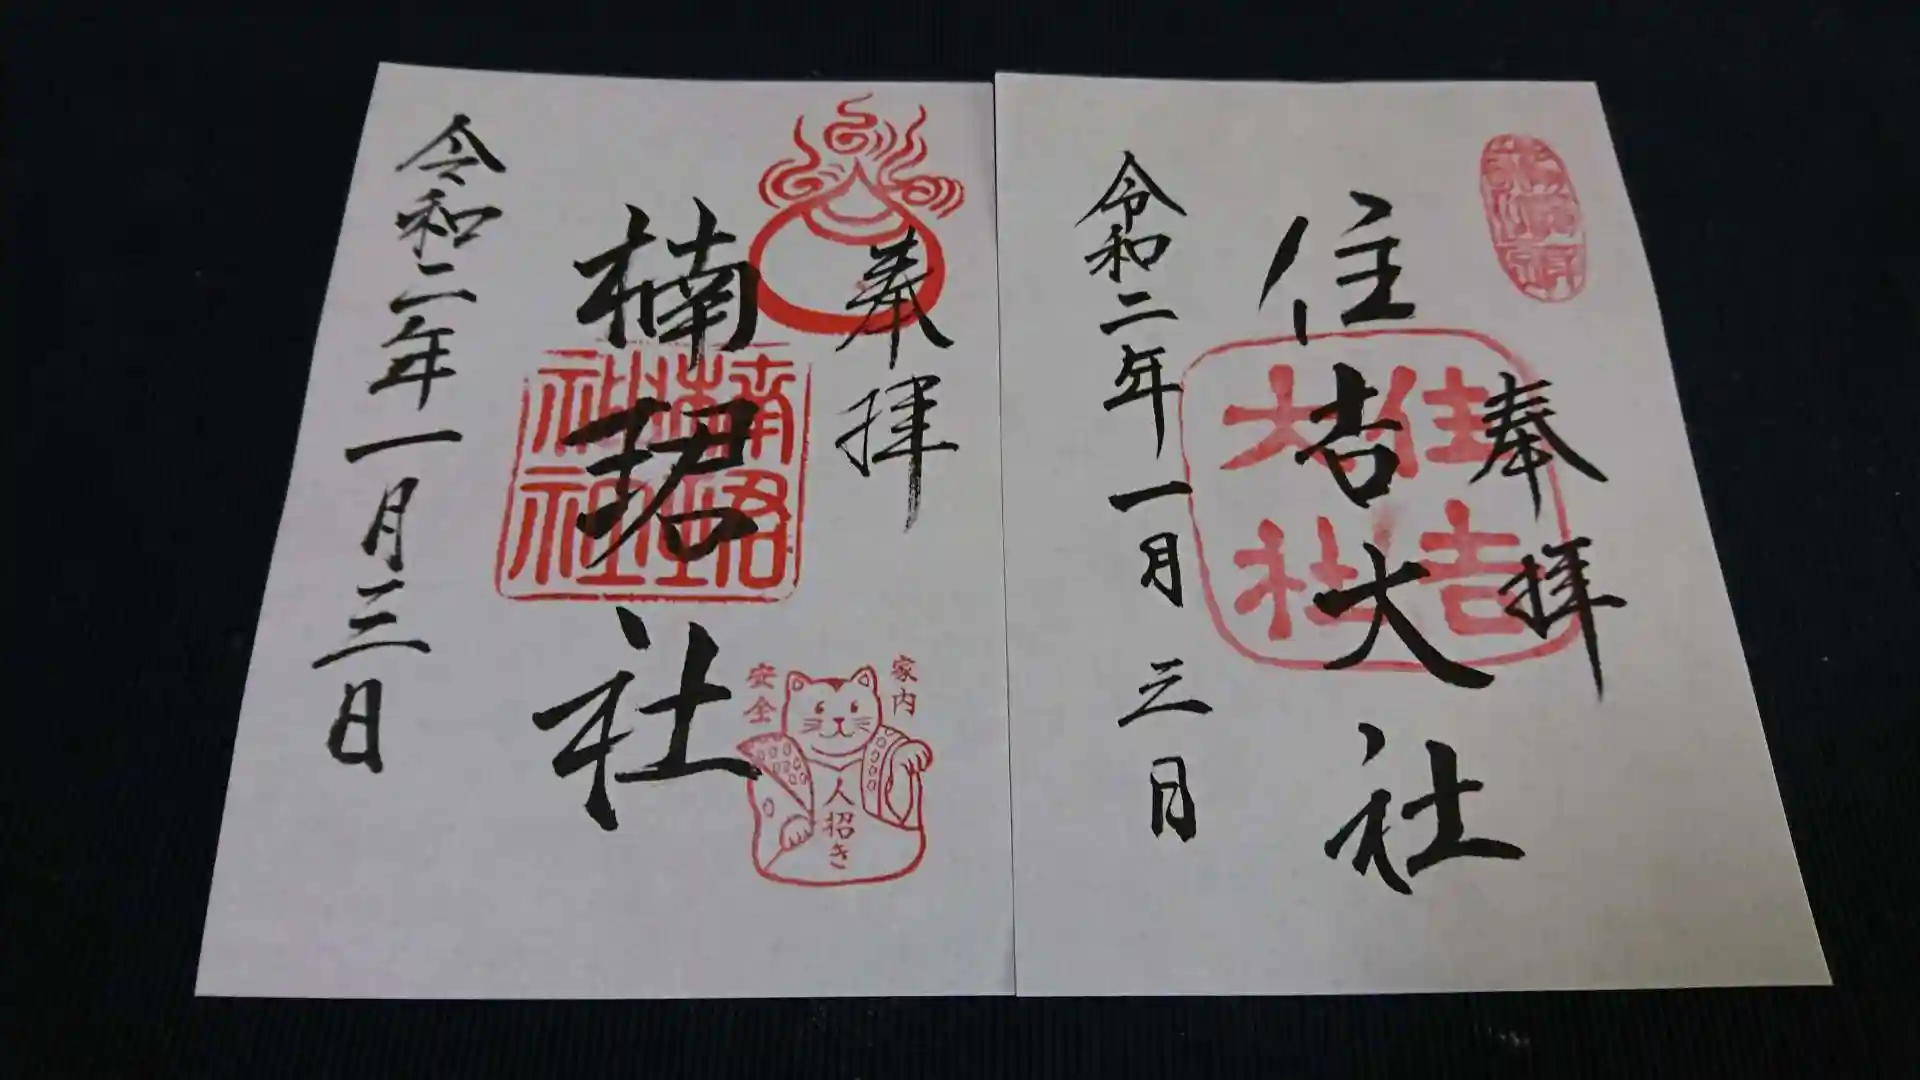 奉拝
住吉大社
住吉大社
令和二年一月三日
奉拝
楠珺社
楠珺社社
令和二年一月三日
家内
安全
人招き